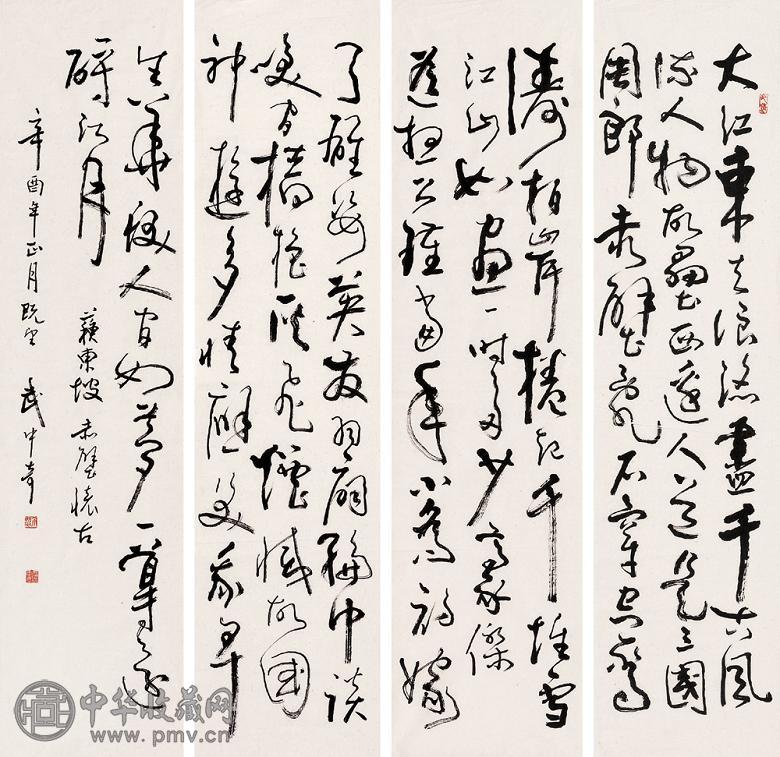 大江東去浪淘盡千古風
流人物故壘西邊人道是三國
周郎赤壁亂石穿空驚
濤拍岸捲起千堆雪
江山如畫一時多少豪傑
遙想公瑾當年小喬初嫁
了雄姿英發羽扇綸巾談
笑間檣櫓灰飛煙滅故國
神遊多情應笑我早
生華髮人間如夢一尊還
酹江月
蘇東坡 赤壁懷古
辛酉年正月既望 武中奇
中华收藏网
www.pmv.cn